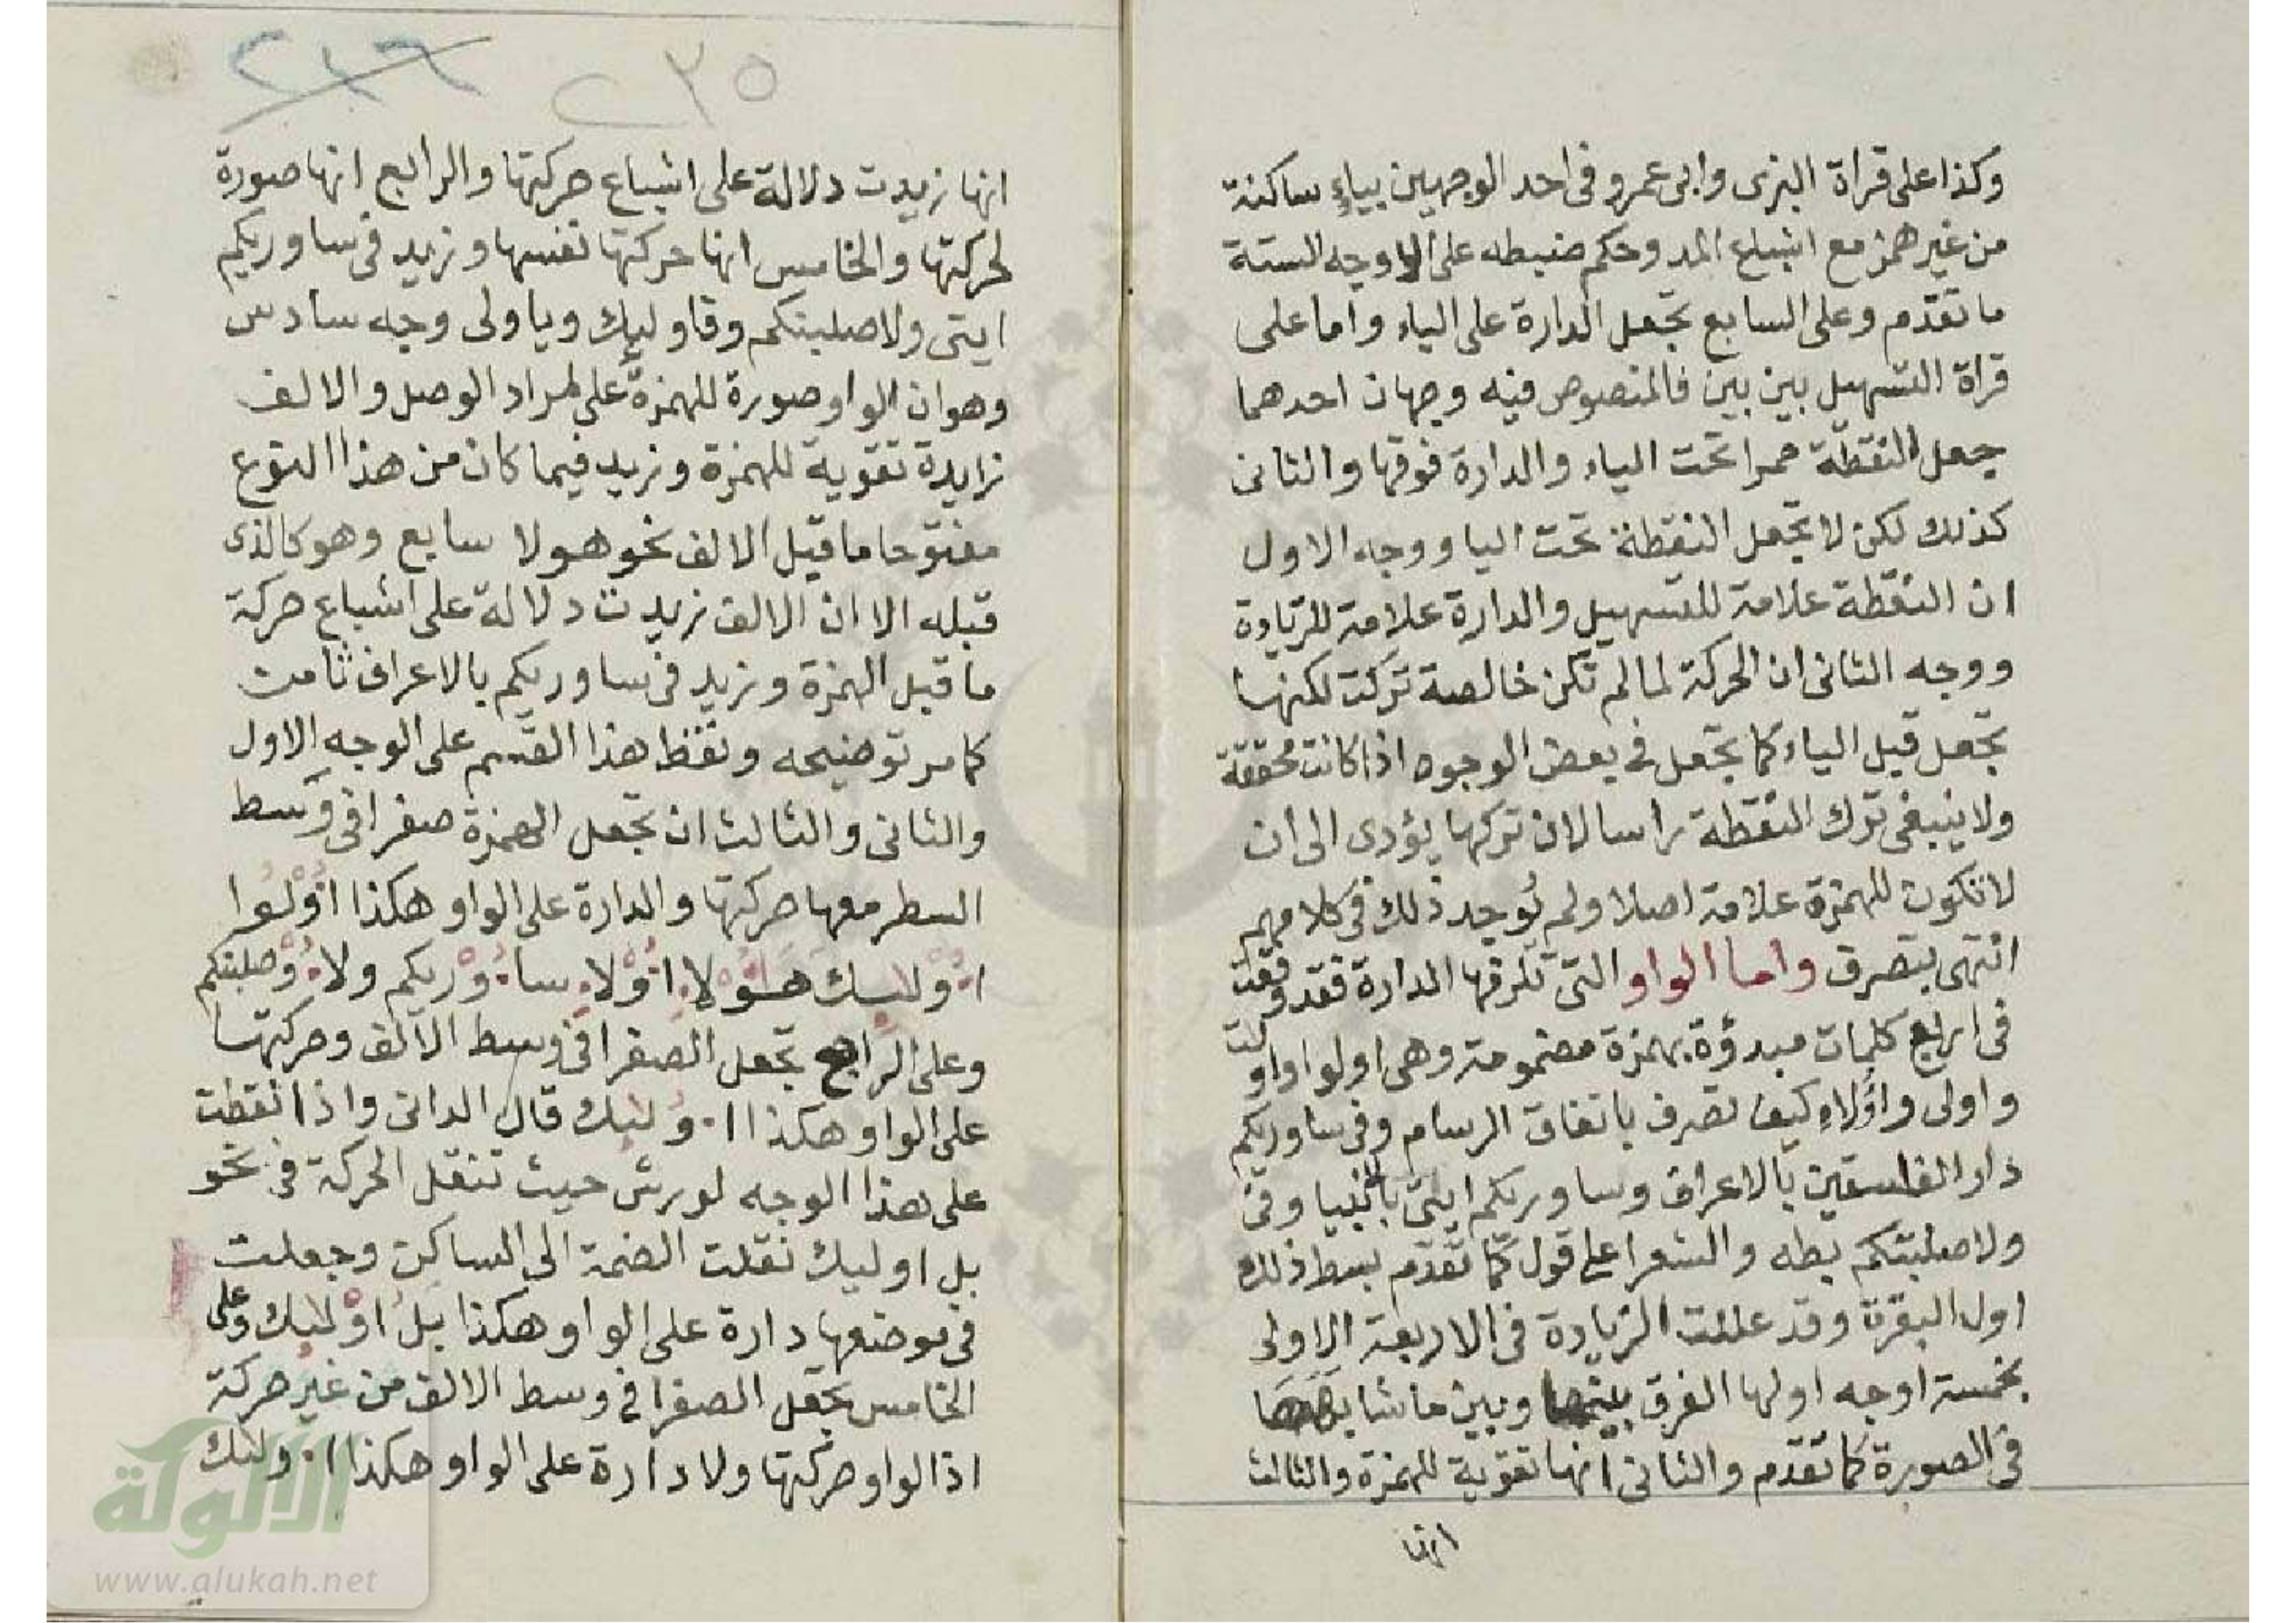 وكذا على قراة البزى وابى عمرو فى احد الوجهين بياء ساكنة
من غير همز مع اشباع المد وحكم ضبطه على الاوجه الستة
ما تقدم وعلى السابع تجعل الدارة على الياء واما على
قراة التسهيل بين بين فالمنصوص فيه وجهان احدهما
جعل النقطة حمرا تحت الياء والدارة فوقها والثانى
كذلك لكن لا تجعل النقطة تحت اليا ووجه الاول
ان النقطة علامة للتسهيل والدارة علامة للزيادة
ووجه الثانى ان الحركة لما لم تكن خالصة تركت لكنها
تجعل قبل الياء كما تجعل فى بعض الوجوه اذا كانت محققة
ولا ينبغى ترك النقطة راسا لان تركها يؤدى الى ان
لا تكون للهمزة علامة اصلا ولم يوجد ذلك فى كلامهم
انتهى بتصرف واما الواو التى تلزمها الدارة فقد وقعت
فى اربع كلمات مبدؤة بهمزة مضمومة وهى اولوا واولت
واولى واولاء كيف تصرف باتفاق الرسام وفى ساوريكم
دار الفاسقين بالاعراف وساوريكم ايتى بالانبيا وفى
ولاصلبنكم بطه والشعرا على قول كما تقدم بسط ذلك
اول البقرة وقد عللت الزيادة فى الاربعة الاولى
بخمسة اوجه اولها الفرق بينها وبين ما شابهها
فى الصورة كما تقدم والثانى انها تقوية للهمزة والثالث
انها
٢٣٦ ٢٣٥
انها زيدت دلالة على اشباع حركتها والرابع انها صورة
لحركتها والخامس انها حركتها نفسها وزيد فى ساوريكم
ايتى ولاصلبنكم وفاوليك وياولى وجه سادس
وهو ان الواو صورة للهمزة على مراد الوصل والالف
زايدة تقوية للهمزة وزيد فيما كان من هذا النوع
مفتوحا ما قبل الالف نحو هولا سابع وهو كالذى
قبله الا ان الالف زيدت دلالة على اشباع حركة
ما قبل الهمزة وزيد فى ساوريكم بالاعراف ثامن
كما مر توضيحه ونقط هذا القسم على الوجه الاول
والثانى والثالث ان تجعل الهمزة صفرا فى وسط
السطر معها حركتها والدارة على الواو هكذا اولوا
اولىك هولا اولا ساوريكم ولاوصلبنكم
وعلى الرابع تجعل الصفرا فى وسط الالف وحركتها
على الواو هكذا اولىك قال الدانى واذا نقطت
على هذا الوجه لورش حيث تنقل الحركة فى نحو
بل اوليك نقلت الضمة الى الساكن وجعلت
فى موضعها دارة على الواو هكذا بل اولىك وعلى
الخامس تجعل الصفرا فى وسط الالف من غير حركة
اذ الواو حركتها ولا دارة على الواو هكذا اولىك
الألوكة
www.alukah.net